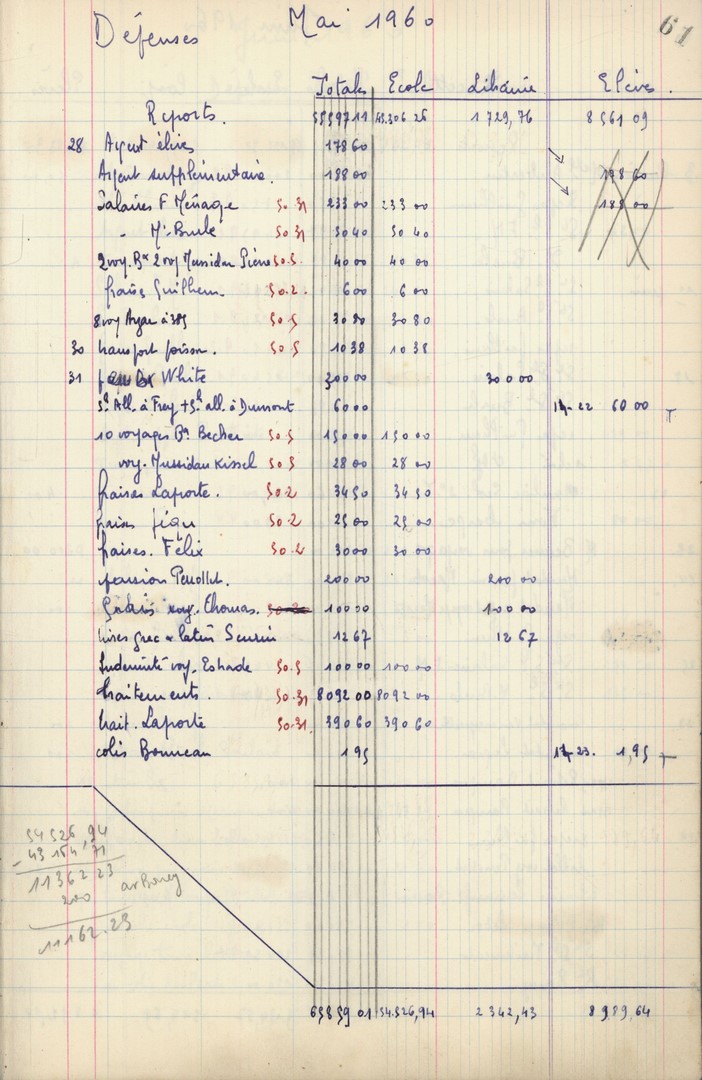 Mai 1960
61
Dépenses
Totaux Ecole Librairie Elèves
Reports. 55597 11 45.306 26 1 729,76 8 561 09
28 Argent élèves 178 60
Argent supplémentaire. 188 00 178 60
Salaires F Ménage 50.31 233 00 233 00 188 00
" Mr Brule 50 31 50 40 50 40
2 voy. Bx 2 voy Mussidan Pierre 50.5. 40 00 40 00
frais Guilhem 50.2. 6 00 6 00
8 voy Agen à 385 50.5 30 80 30 80
30 transport poisson. 50 5 10 38 10 38
31 White 300 00 300 00
All. à Frey + all. à Dumont 60 00 14-22 60 00 T
10 voyages Bx Becher 50.5 150 00 150 00
voy. Mussidan Kissel 50 5 28 00 28 00
fraises Laporte. 50.2 34 50 34 50
50.2 25 00 25 00
fraises. Félix 50.2 30 00 30 00
pension 200 00 200 00
voy. Thomas. 100 00 100 00
livres grec & latin 12 67 12 67
Indemnité voy. Estrade 50.5 100 00 100 00
traitements. 50.31 8092 00 8092 00
trait. Laporte 50.31. 390 60 390 60
colis Bonneau 1 95 14-23. 1,95 T
54526 94
- 43 164 71
11362 23
200
11162.23
65859 01 54.526,94 2 342,43 8 989,64